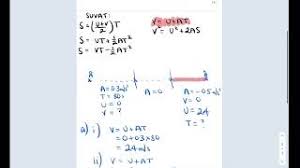 SUVAT:
S = (U+V/2)T
S = UT + ½AT²
S = VT - ½AT²
V = U + AT
V² = U² + 2AS
A = 0.3 m/s²
T = 80s
U = 0
V = ?
A = 0
A = -0.5 m/s²
V = 0
U = 24
T = ?
a) i) V = U + AT
= 0 + 0.3×80
= 24 m/s
ii) V = U + AT